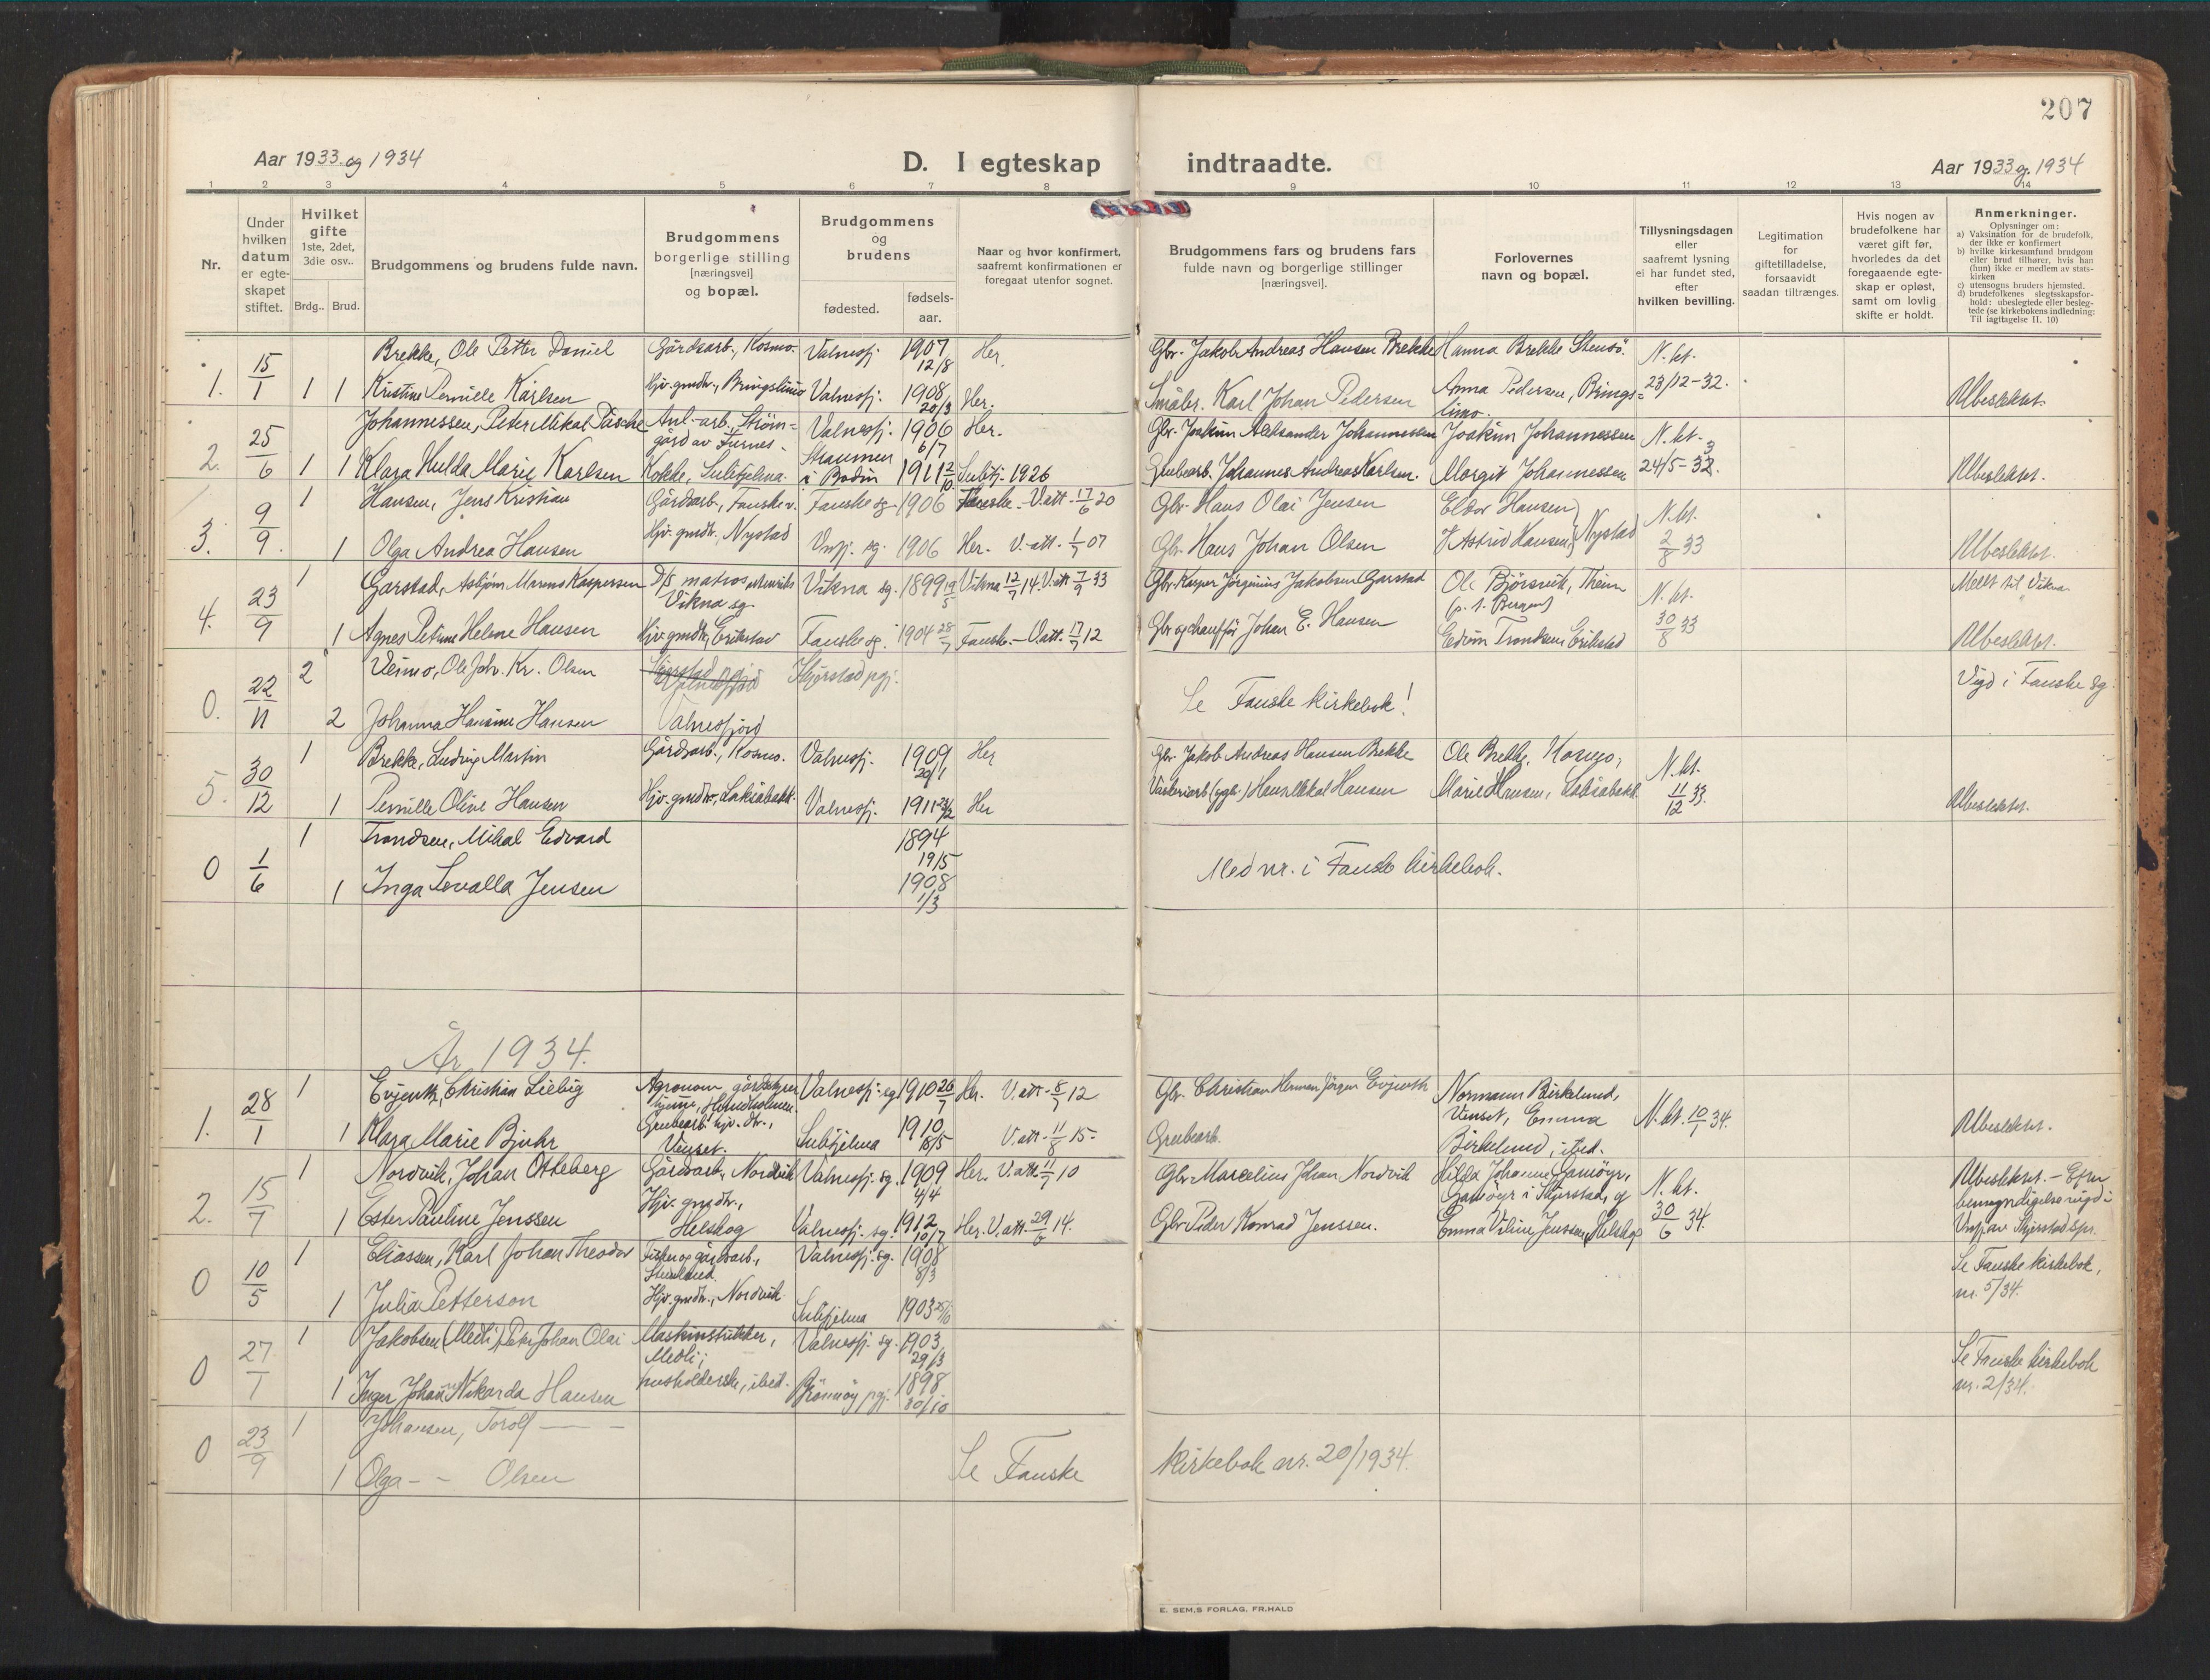 207
Aar 1933 og 1934
D. I egteskap indtraadte.
Aar 1933 og 1934
1 2 3 4 5 6 7 8 9 10 11 12 13 14
Nr.
Under hvilken datum er egteskapet stiftet.
Hvilket gifte 1ste, 2det, 3die osv..
Brdg.. Brud.
Brudgommens og brudens fulde navn.
Brudgommens borgerlige stilling [næringsvei] og bopæl.
Brudgommens og brudens
fødested. fødsels-aar.
Naar og hvor konfirmert, saafremt konfirmationen er foregaat utenfor sognet.
Brudgommens fars og brudens fars fulde navn og borgerlige stillinger [næringsvei].
Forlovernes navn og bopæl.
Tillysningsdagen eller saafremt lysning ei har fundet sted, efter hvilken bevilling.
Legitimation for giftetilladelse, forsaavidt saadan tiltrænges.
Hvis nogen av brudefolkene har været gift før, hvorledes da det foregaaende egteskap er opløst, samt om lovlig skifte er holdt.
Anmerkninger.
Oplysninger om:
a) Vaksination for de brudefolk, der ikke er konfirmert
b) hvilke kirkesamfund brudgom eller brud tilhører, hvis han (hun) ikke er medlem av statskirken
c) utensogns bruders hjemsted.
d) brudefolkenes slegtsskapsforhold: ubeslegtede eller beslegtede (se kirkebokens indledning: Til iagttagelse II. 10)
1. 15/1 1 Brekke, Ole Petter Daniel Gårdsarb., Kosmo. Valnesfj. 1907 12/8 Her. Gbr. Jakob Andreas Hansen Brekke Hanna Brekke Stensö. N. kt.
1 Kristine Pernille Karlsen Hjv. gmdtr., Bringslimo Valnesfj. 1908 20/3 Her. Småbr. Karl Johan Pedersen Anna Pedersen, Bringslimo. 23/12-32. Ubeslektet.
2. 25/6 1 Johannessen, Peter Mikal Pasche Anl.-arb., Strömgård av Furnes. Valnesfj. 1906 6/7 Her. Gbr. Joakim Aleksander Johannessen Joakim Johannessen N. kt.
1 Klara Hulda Marie Karlsen Kokke, Sulitjelma. Straumen i Bodin 1911 2/10 Sulitj. 1926 Grubearb. Johannes Andreas Karlsen. Margit Johannessen 24/5-33. Ubeslektet.
3. 9/9 1 Hansen, Jens Kristian Gårdsarb., Fauske v. Fauske sg. 1906 Fauske. V.att. 17/6 20 Gbr. Hans Olai Jensen Eldor Hansen N. kt.
1 Olga Andrea Hansen Hjv. gmdtr., Nystad Vnfj. sg. 1906 Her. V.-att. 1/7 07 Gbr. Hans Johan Olsen Astrid Hansen, Nystad 2/8 33 Ubeslektet.
4. 23/9 1 Garstad, Asbjörn Marenus Kaspersen D/S matros Vikna sg. Vikna sg. 1899 19/5 Vikna 12/7 14. V.att. 7/9 33 Gbr. Kasper Jörginius Jakobsen Garstad Ole Björsvik, (p. t. Bergen) N. kt. Meldt til Vikna
1 Agnes Petrine Helene Hansen Hjv. gmdtr., Erikstad Fauske sg. 1904 28/7 Fauske. - V.att. 17/7 12 Gbr. og chaufför Johan E. Hansen Edvin Trondsen, Erikstad 30/8 33 Ubeslektet.
0. 22/11 2 Veimo, Ole Joh. Kr. Olsen Skjerstad pgj. Vigd i Fauske sg.
2 Johanna Hansine Hansen Valnesfjord Se Fauske kirkebok!
5. 30/12 1 Brekke, Ludvig Martin Gårdsarb., Kosmo. Valnesfj. 1909 20/1 Her Gbr. Jakob Andreas Hansen Brekke Ole Brekke, Kosmo, N. kt.
1 Pernille Olive Hansen Hjv. gmdtr., Laksåbakk. Valnesfj. 1911 Her Hans Mikal Hansen Marie Hansen, Laksåbakk. 11/12 33. Ubeslektet.
0 1/6 1 Trondsen, Mikal Edvard 1894 19/5
1 Inga Lovalla Jensen 1908 1/3 Med nr. i Fauske kirkebok.
År 1934.
1. 28/1 1 Evjenth, Christian Liebig Agronom, Valnesfj. sg. 1910 26/7 Her. V.att. 8/7 12 Gbr. Christian Herman Jörgen Evjenth Normann Birkelund,
1 Klara Marie Bjuhr Grubearb. hjv. dtr., Venset. Sulitjelma 1910 18/5 V.att. 11/8 15. Grubearb. Venset, Emma Birkelund, ibid. N. kt. 10/1 34. Ubeslektet.
2. 15/7 1 Nordvik, Johan Otteberg Gårdsarb., Nordvik Valnesfj. sg. 1909 4/4 Her. V.att. 11/7 10 Gbr. Marcelius Johan Nordvik Hilda Johanne Gamöyr, Gamöyr i Skjerstad, og N. kt. Ubeslektet. - Efter bemyndigelse vigd i Vnfj. av Skjerstad spr.
1 Ester Pauline Jenssen Hjv. gmdtr., Helskog Valnesfj. sg. 1912 10/7 Her. V.att. 29/6 14. Gbr. Peder Konrad Jenssen. Emma Viline Jenssen, Helskog 30/6 34.
0 10/5 1 Eliassen, Karl Johan Theodor Fisker og gårdsarb., Valnesfj. sg. 1908 8/3 Se Fauske kirkebok, nr. 5/34.
1 Julia Petterson Hjv. gmdtr., Nordvik Sulitjelma 1903
0 27/1 1 Jakobsen (Medli), Peter Johan Olai Maskinstrikker, Medli; Valnesfj. sg. 1903 29/3 Se Fauske kirkebok nr. 2/34.
1 Inger Johanne Nikarda Hansen husholderske, ibid. Brönnöy pgj. 1898 30/10
0 23/9 1 Johansen, Torolf
1 Olga - - Olsen Se Fauske kirkebok nr. 20/1934.
E. SEM.S FORLAG, FR.HALD